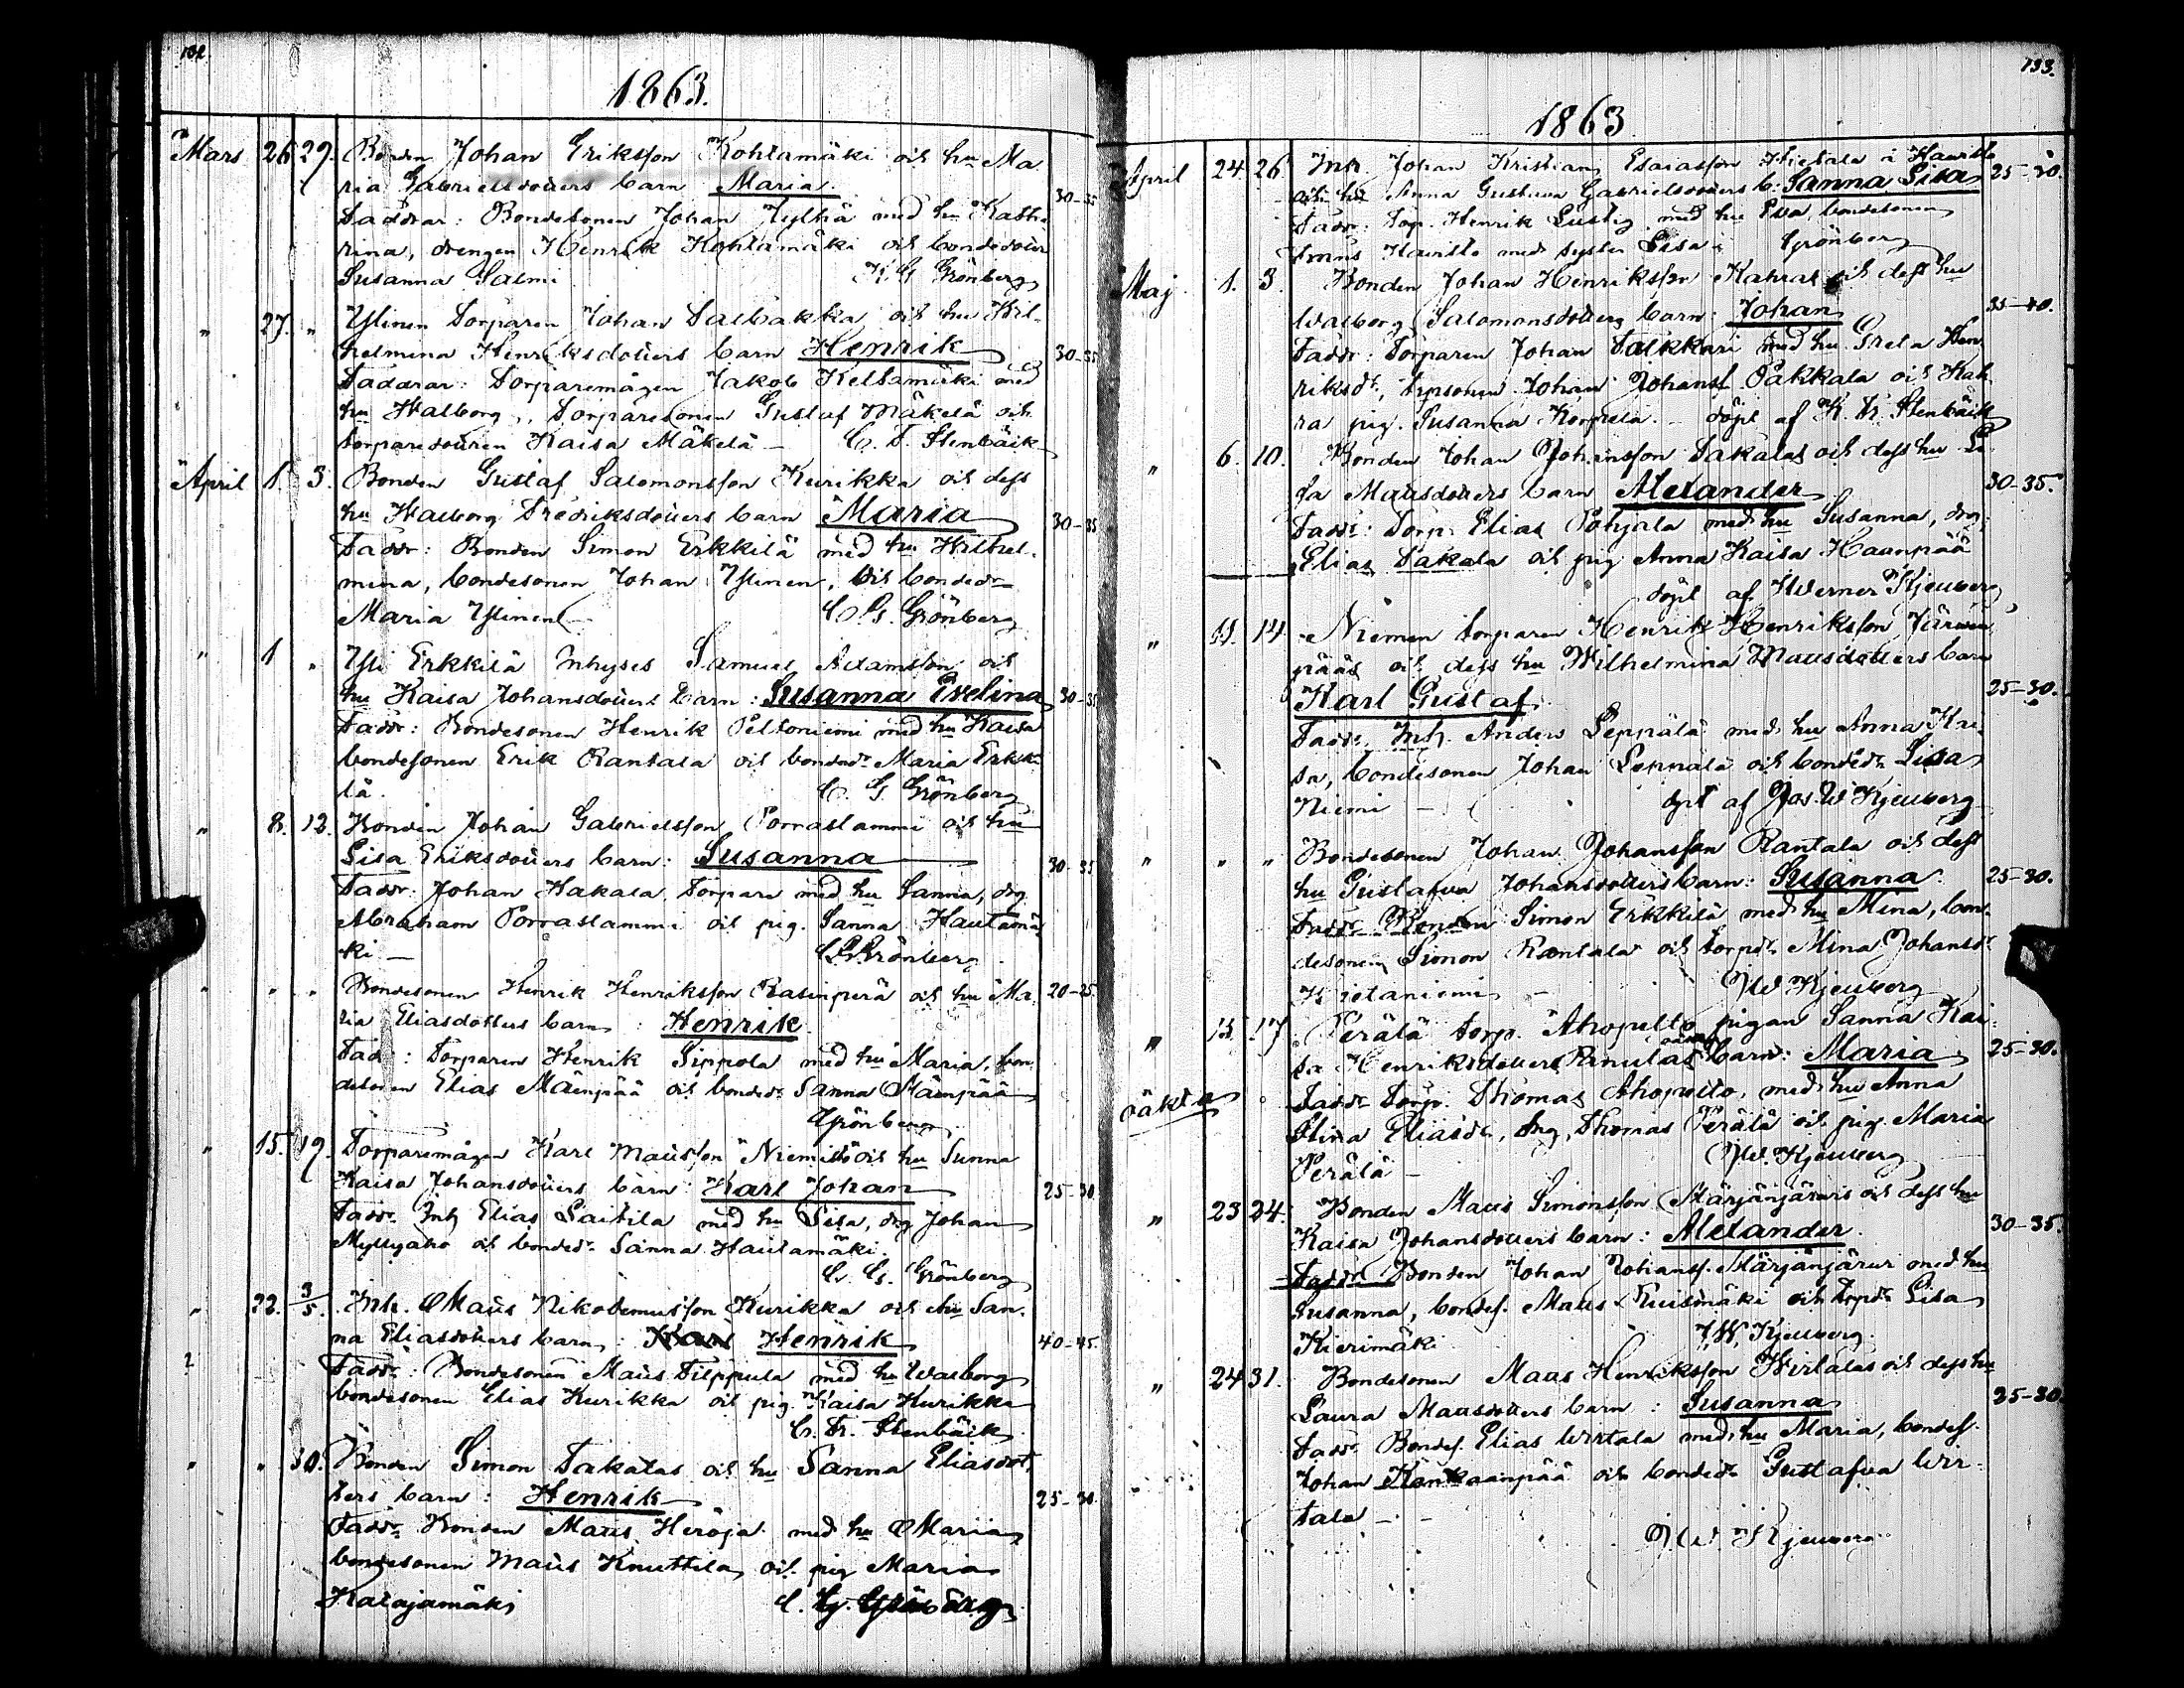 132.
1863.
Mars 26 29. Bonden Johan Eriksson Kohtamäki och hu Ma
ria Gabrielsdotters barn Maria. 30-35
Faddrar: Bondesonen Johan Jylhä med hu Kath
rina, drengen Henrik Kohtamäki och bondedotter
Susanna Salmi K. G. Grönberg
" 27. " Ylinen Torparen Johan Salbakka och hu Wil
helmina Henriksdotters barn Henrik 30-35
Faddrar: Torparemågen Jakob Keltamäki med
hu Walborg, Torparesonen Gustaf Mäkelä och
torparedottren Kaisa Mäkelä - C. F. Stenbäck
April 1. 3. Bonden Gustaf Salomonsson Kurikka och dess
hu Walborg Fredriksdotters barn Maria 30-35
Faddr: Bonden Simon Erkkilä med hu Wilhel-
mina, bondesonen Johan Ylinen, och bondedr
Maria Ylinen - C. G. Grönberg
" 1 " Yli Erkkilä Inhyses Samuel Adamsson och
hu Kaisa Johansdotters barn: Susanna Evelina 30-35
Faddr: Bondesonen Henrik Peltoniemi med hu Kaisa
bondesonen Erik Rantala och bonded Maria Erkki
lä. C. G. Grönberg
" 8. 12. Bonden Johan Gabrielsson Porraslammi och hu
Lisa Eriksdotters barn: Susanna 30-35
Faddr: Johan Kakala, Torpare med hu Sanna, dr.
Abraham Porraslammi och pig. Sanna Hautamä
ki - C. G. Grönberg
" " " Bondesonen Henrik Henriksson Rasinperä och hu Ma 20-25.
ria Eliasdotters barn: Henrik.
Fadd: Torparen Henrik Sippola med hu Maria, bon
desonen Elias Mäenpää och bonded. Sanna Mäenpää
Grönberg
" 15. 19. Torparemågen Karl Mattsson Niemistö och hu Sanna
Kaisa Johansdotters barn: Karl Johan 25-30
Faddr. Inh Elias Laitila med hu Lisa, drg Johan
Myllyaho och bonded. Sanna Hautamäki.
C. G. Grönberg
" 22. 3/5. Inh. Matts Nikodemusson Kurikka och hu San-
na Eliasdotters barn: Henrik 40-45.
Faddr: Bondesonen Matts Filppula med hu Walborg
bondesonen Elias Kurikka och pig. Kaisa Kurikka
C. Fr. Stenbäck
" " 30. Bonden Simon Takalas och hu Sanna Eliasdot
ters barn: Henrik 25-30.
Faddr Bonden Matts Heroja med hu Maria
bondesonen Matts Knuttila, och pig Maria
Katajamäki C. G. Grönberg
133.
1863
April 24 26 Inh. Johan Kristian Esaiasson Hietala å Havisto
och hu Anna Gustava Gabrielsdotters b: Sanna Lisa 25-30.
Faddr: Torp. Henrik Lustig med hu Eva, bondesonen
Frans Havisto med syster Lisa Grönberg
Maj 1. 3. Bonden Johan Henriksson Kahras och dess hu
Walborg Salomonsdotters barn: Johan 35-40.
Faddr: Torparen Johan Talkkari med hu Greta Hen
riksdr, Johan Johanss Pakkala och Kah
ra pig. Susanna Korpela. - döpt af K. Fr. Stenbäck
" 6. 10. Bonden Johan Johansson Takalas och dess hu Li
sa Mattsdotters barn Alexander 30-35.
Faddr: Torp. Elias Pohjala med hu Susanna, drg.
Elias Takala och pig Anna Kaisa Haanpää
döpt af Werner Kjeuberg
" 11. 14 Niemen torparen Henrik Henriksson Järwen
pääs och dess hu Wilhelmina Mattsdotters barn
Karl Gustaf. 25-30.
Faddr. Inh. Anders Leppälä med hu Anna Kai
sa, bondesonen Johan Leppälä och bondedr Lisa
Niemi - döpt af Jos. W Kjeuberg
" " " Bondesonen Johan Johansson Rantala och dess
hu Gustafva Johansdotters barn: Susanna. 25-30.
Faddr Bonden Simon Erkkilä med hu Mina, bon
desonen Simon Rantala och torpdr Mina Johansdr
Kietaniemi - JW Kjeuberg
" 15 17. Perälä torp. Ahopelto pigan Sanna Kai
sa Henriksdotters Ranulas barn: Maria 25-30.
oäkta Faddr Torp. Thomas Ahopelto, med hu Anna
Stina Eliasdr, drg, Thomas Perälä och pig. Maria
Perälä - JW. Kjeuberg
" 23 24. Bonden Matts Simonsson Märjänjärwis och dess hu
Kaisa Johansdotters barn: Alexander. 30-35.
Faddr Bonden Johan Johanss. Märjänjärwi med hu
Susanna, bondes. Matts Ruismäki och torpdr Lisa
Kierimäki J. W. Kjeuberg.
" 24 31. Bondesonen Matts Henriksson Wirtalas och dess hu
Laura Mattsdotters barn: Susanna 25-30.
Faddr Bondes. Elias Wirtala med hu Maria, bondes.
Johan Kankaanpää och bondedr Gustafva Wir-
tala - J. W. Kjeuberg